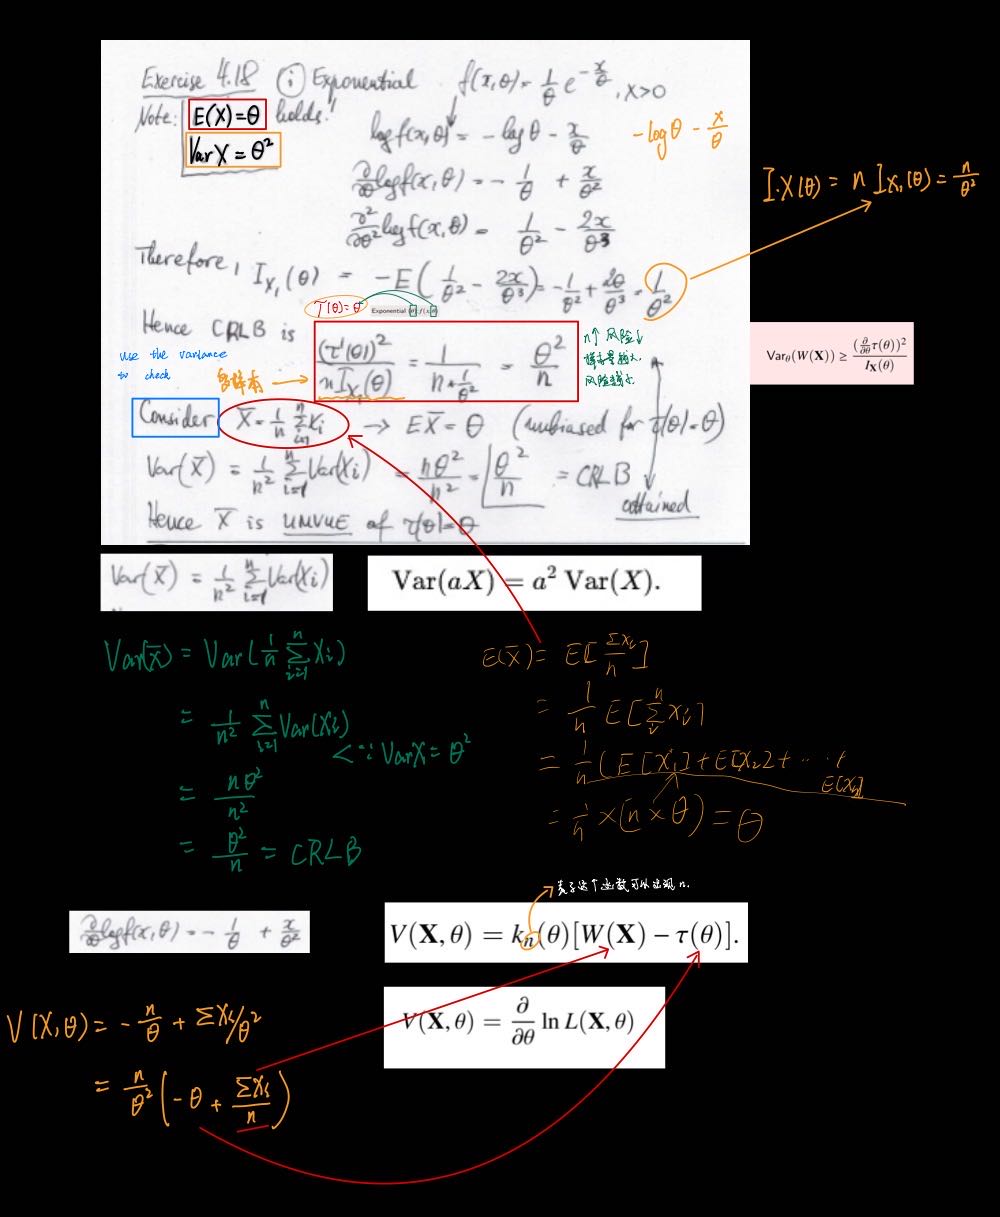 Exercise 4.18 (i) Exponential f(x,θ) = 1/θ e^{-x/θ}, x>0
Note: E(X)=θ holds!
Var X = θ²
log f(x,θ) = - log θ - x/θ
-log θ - x/θ
∂/∂θ log f(x,θ) = - 1/θ + x/θ²
I_X(θ) = n I_{X₁}(θ) = n/θ²
∂²/∂θ² log f(x,θ) = 1/θ² - 2x/θ³
Therefore, I_{X₁}(θ) = -E(1/θ² - 2x/θ³) = -1/θ² + 2θ/θ³ = 1/θ²
τ(θ)=θ
Hence CRLB is (τ'(θ))²/(n I_{X₁}(θ)) = 1/(n * 1/θ²) = θ²/n
n↑ 风险↓
use the variance
to check
多样本
Var_θ(W(X)) ≥ (∂/∂θ τ(θ))² / I_X(θ)
Consider X̄ = 1/n Σ_{i=1}^n X_i → E X̄ = θ (unbiased for τ(θ)=θ)
Var(X̄) = 1/n² Σ_{i=1}^n Var(X_i) = nθ²/n² = θ²/n = CRLB
attained
Hence X̄ is UMVUE of τ(θ)=θ
Var(X̄) = 1/n² Σ_{i=1}^n Var(X_i)
Var(aX) = a² Var(X).
Var(X̄) = Var(1/n Σ_{i=1}^n X_i)
= 1/n² Σ_{i=1}^n Var(X_i)
<∵ Var X = θ²
= nθ²/n²
= θ²/n = CRLB
E(X̄) = E[ΣX_i/n]
= 1/n E[Σ_i^n X_i]
= 1/n (E[X₁] + E[X₂] + ... + E[X_n]
= 1/n × (n × θ) = θ
表示这个函数可以出现 n.
∂/∂θ log f(x,θ) = - 1/θ + x/θ²
V(X, θ) = k_n(θ)[W(X) − τ(θ)].
V(X, θ) = ∂/∂θ ln L(X, θ)
V(X,θ) = - n/θ + ΣX_i/θ²
= n/θ² (-θ + ΣX_i/n)